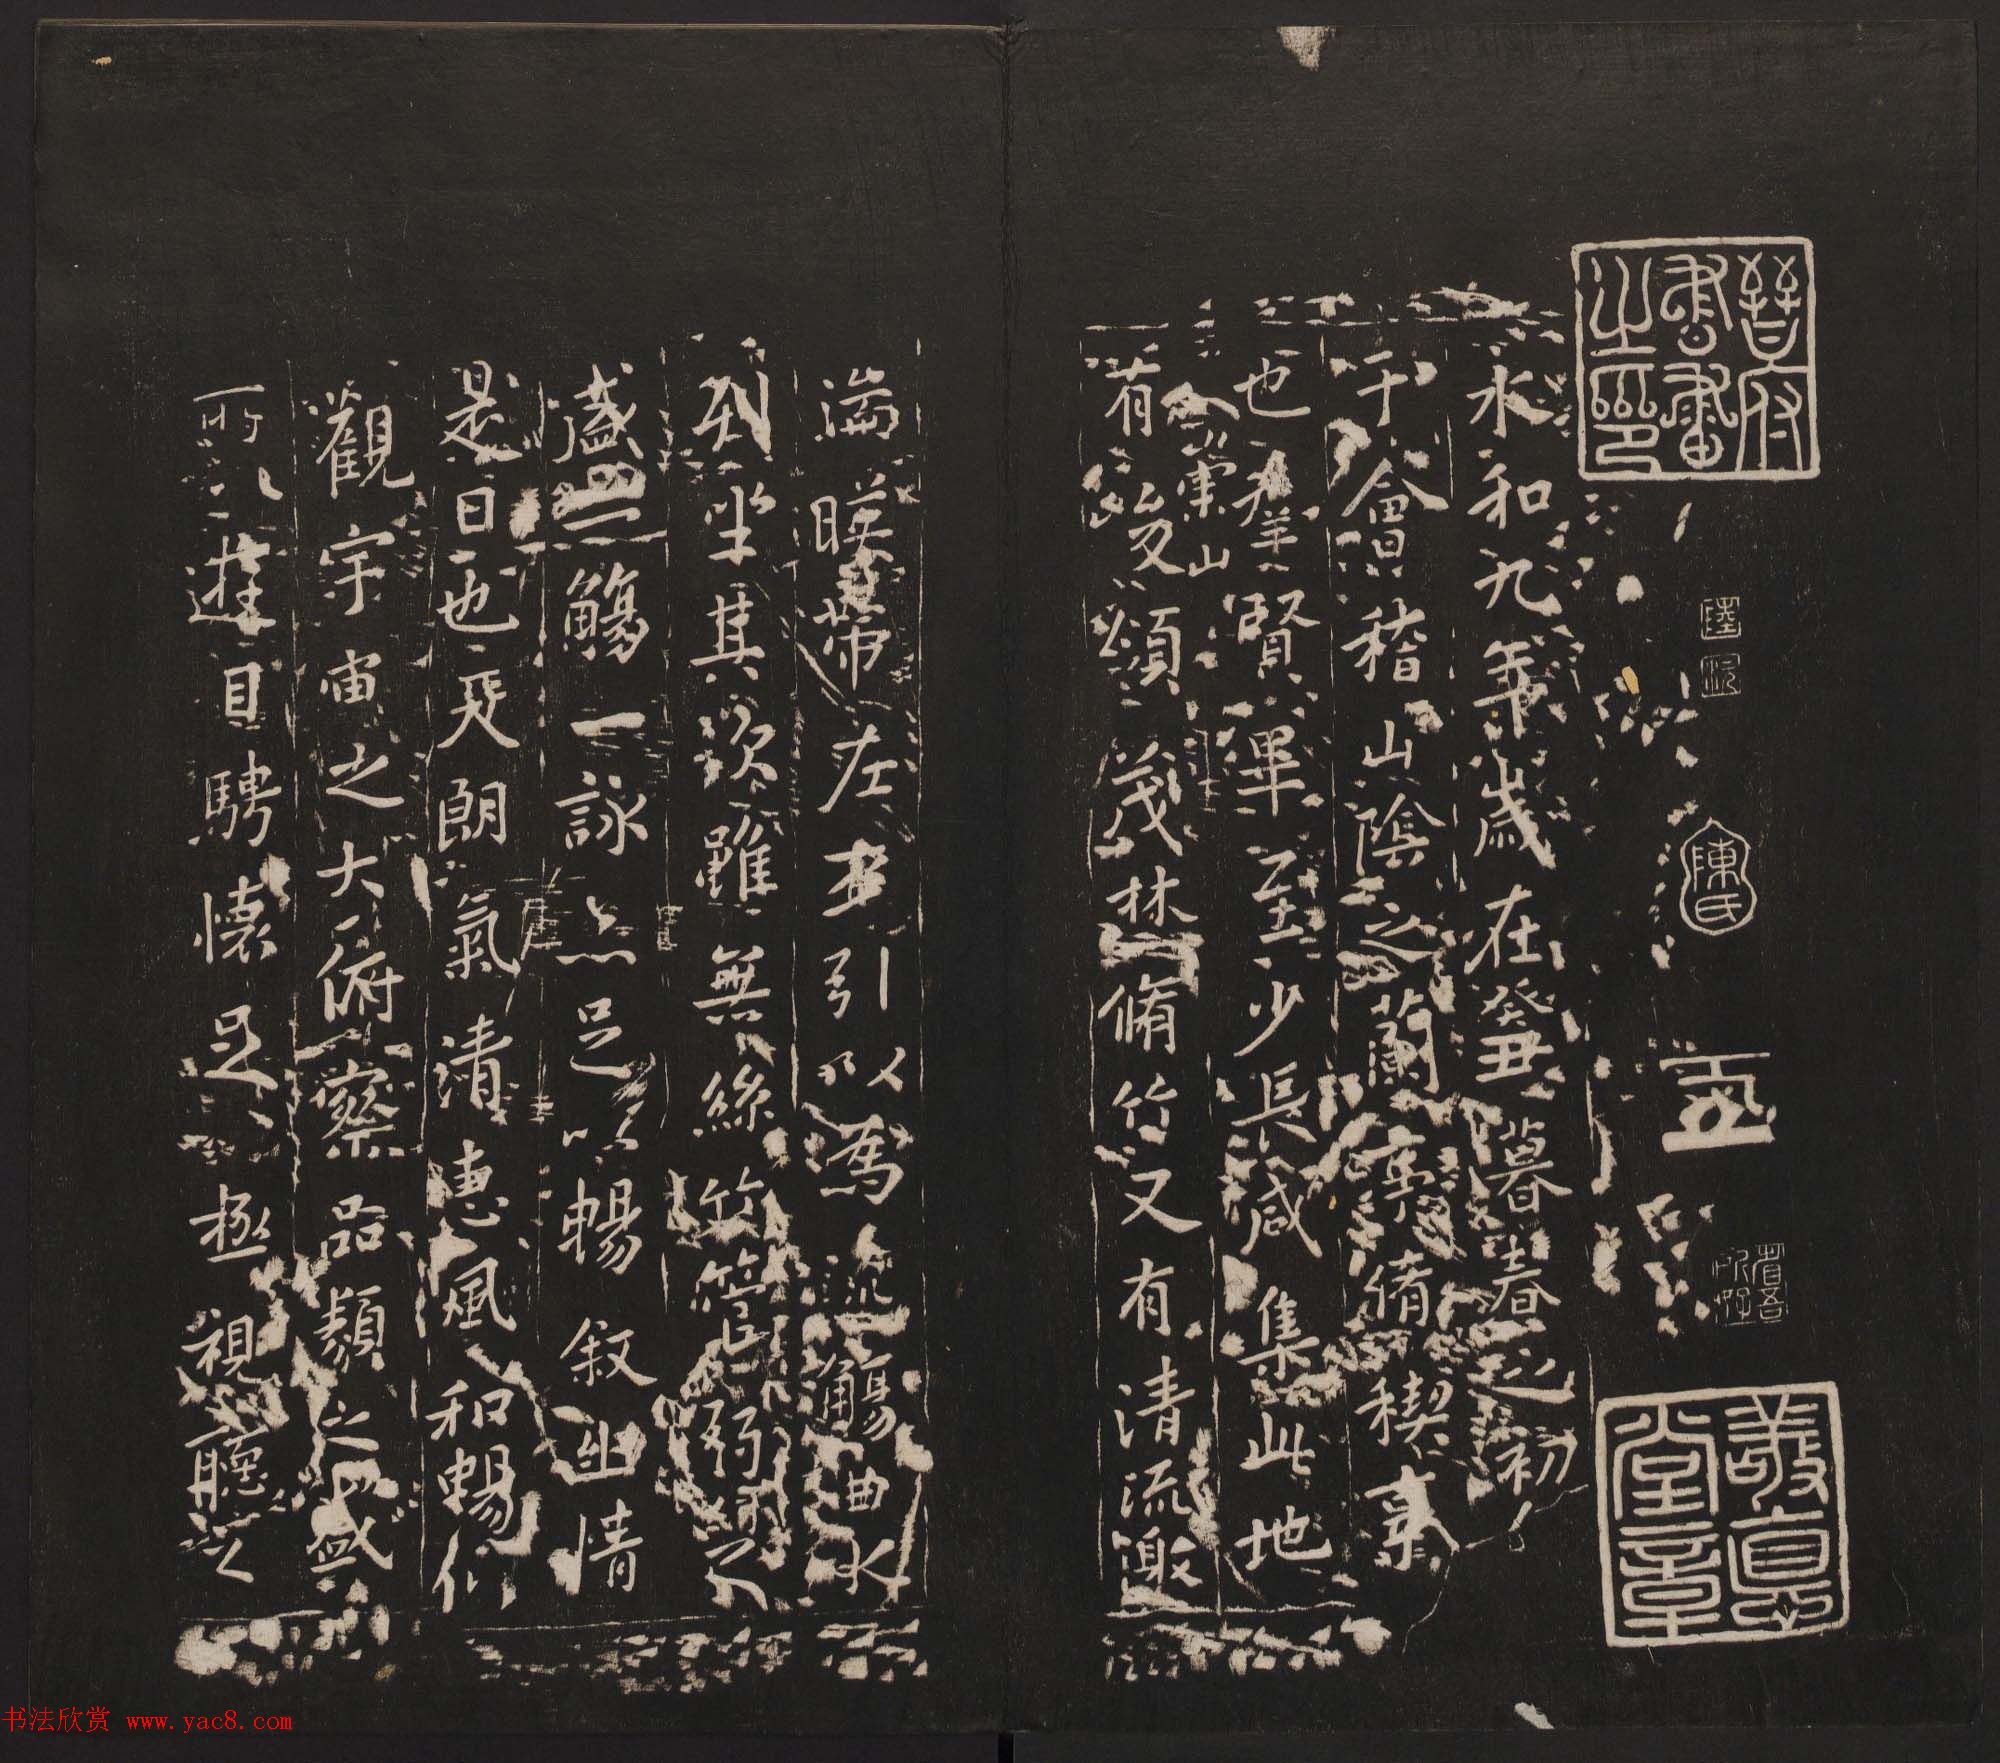 晉府書畫之印
陳氏
永和九年歲在癸丑暮春之初
于會稽山陰之蘭亭脩稧事
也羣賢畢至少長咸集此地
崇山
有峻領茂林脩竹又有清流激
湍暎帶左右引以為流觴曲水
列坐其次雖無絲竹管弦之
盛一觴一詠亦足以暢敘幽情
是日也天朗氣清惠風和暢仰
觀宇宙之大俯察品類之盛
所以遊目騁懷足以極視聽之
书法欣赏 www.yac8.com